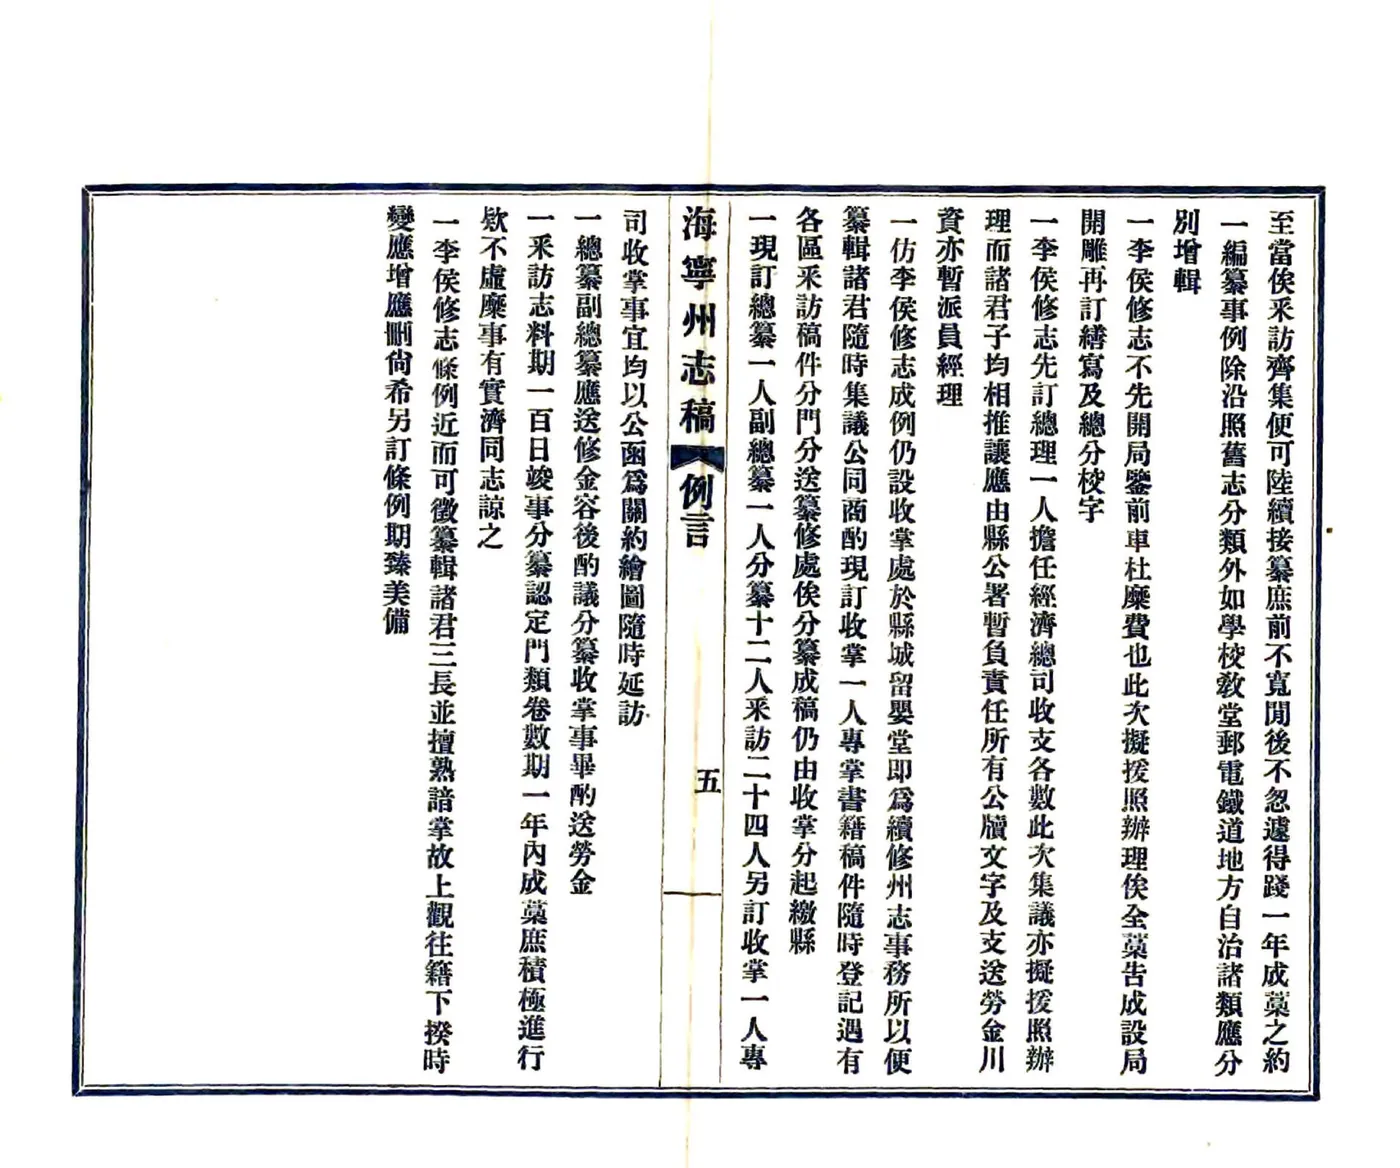 至當俟采訪齊集便可陸續接纂庶前不寬閒後不忽遽得踐一年成藁之約
一編纂事例除沿照舊志分類外如學校敎堂郵電鐵道地方自治諸類應分
別增輯
一李侯修志不先開局鑒前車杜糜費也此次擬援照辦理俟全藁告成設局
開雕再訂繕寫及總分校字
一李侯修志先訂總理一人擔任經濟總司收支各數此次集議亦擬援照辦
理而諸君子均相推讓應由縣公署暫負責任所有公牘文字及支送勞金川
資亦暫派員經理
一仿李侯修志成例仍設收掌處於縣城留嬰堂即爲續修州志事務所以便
纂輯諸君隨時集議公同商酌現訂收掌一人專掌書籍稿件隨時登記遇有
各區采訪稿件分門分送纂修處俟分纂成稿仍由收掌分起繳縣
一現訂總纂一人副總纂一人分纂十二人采訪二十四人另訂收掌一人專
海寧州志稿 例言 五
司收掌事宜均以公函爲關約繪圖隨時延訪
一總纂副總纂應送修金容後酌議分纂收掌事畢酌送勞金
一采訪志料期一百日竣事分纂認定門類卷數期一年內成藁庶積極進行
欵不虛糜事有實濟同志諒之
一李侯修志條例近而可徵纂輯諸君三長並擅熟諳掌故上觀往籍下揆時
變應增應刪尙希另訂條例期臻美備